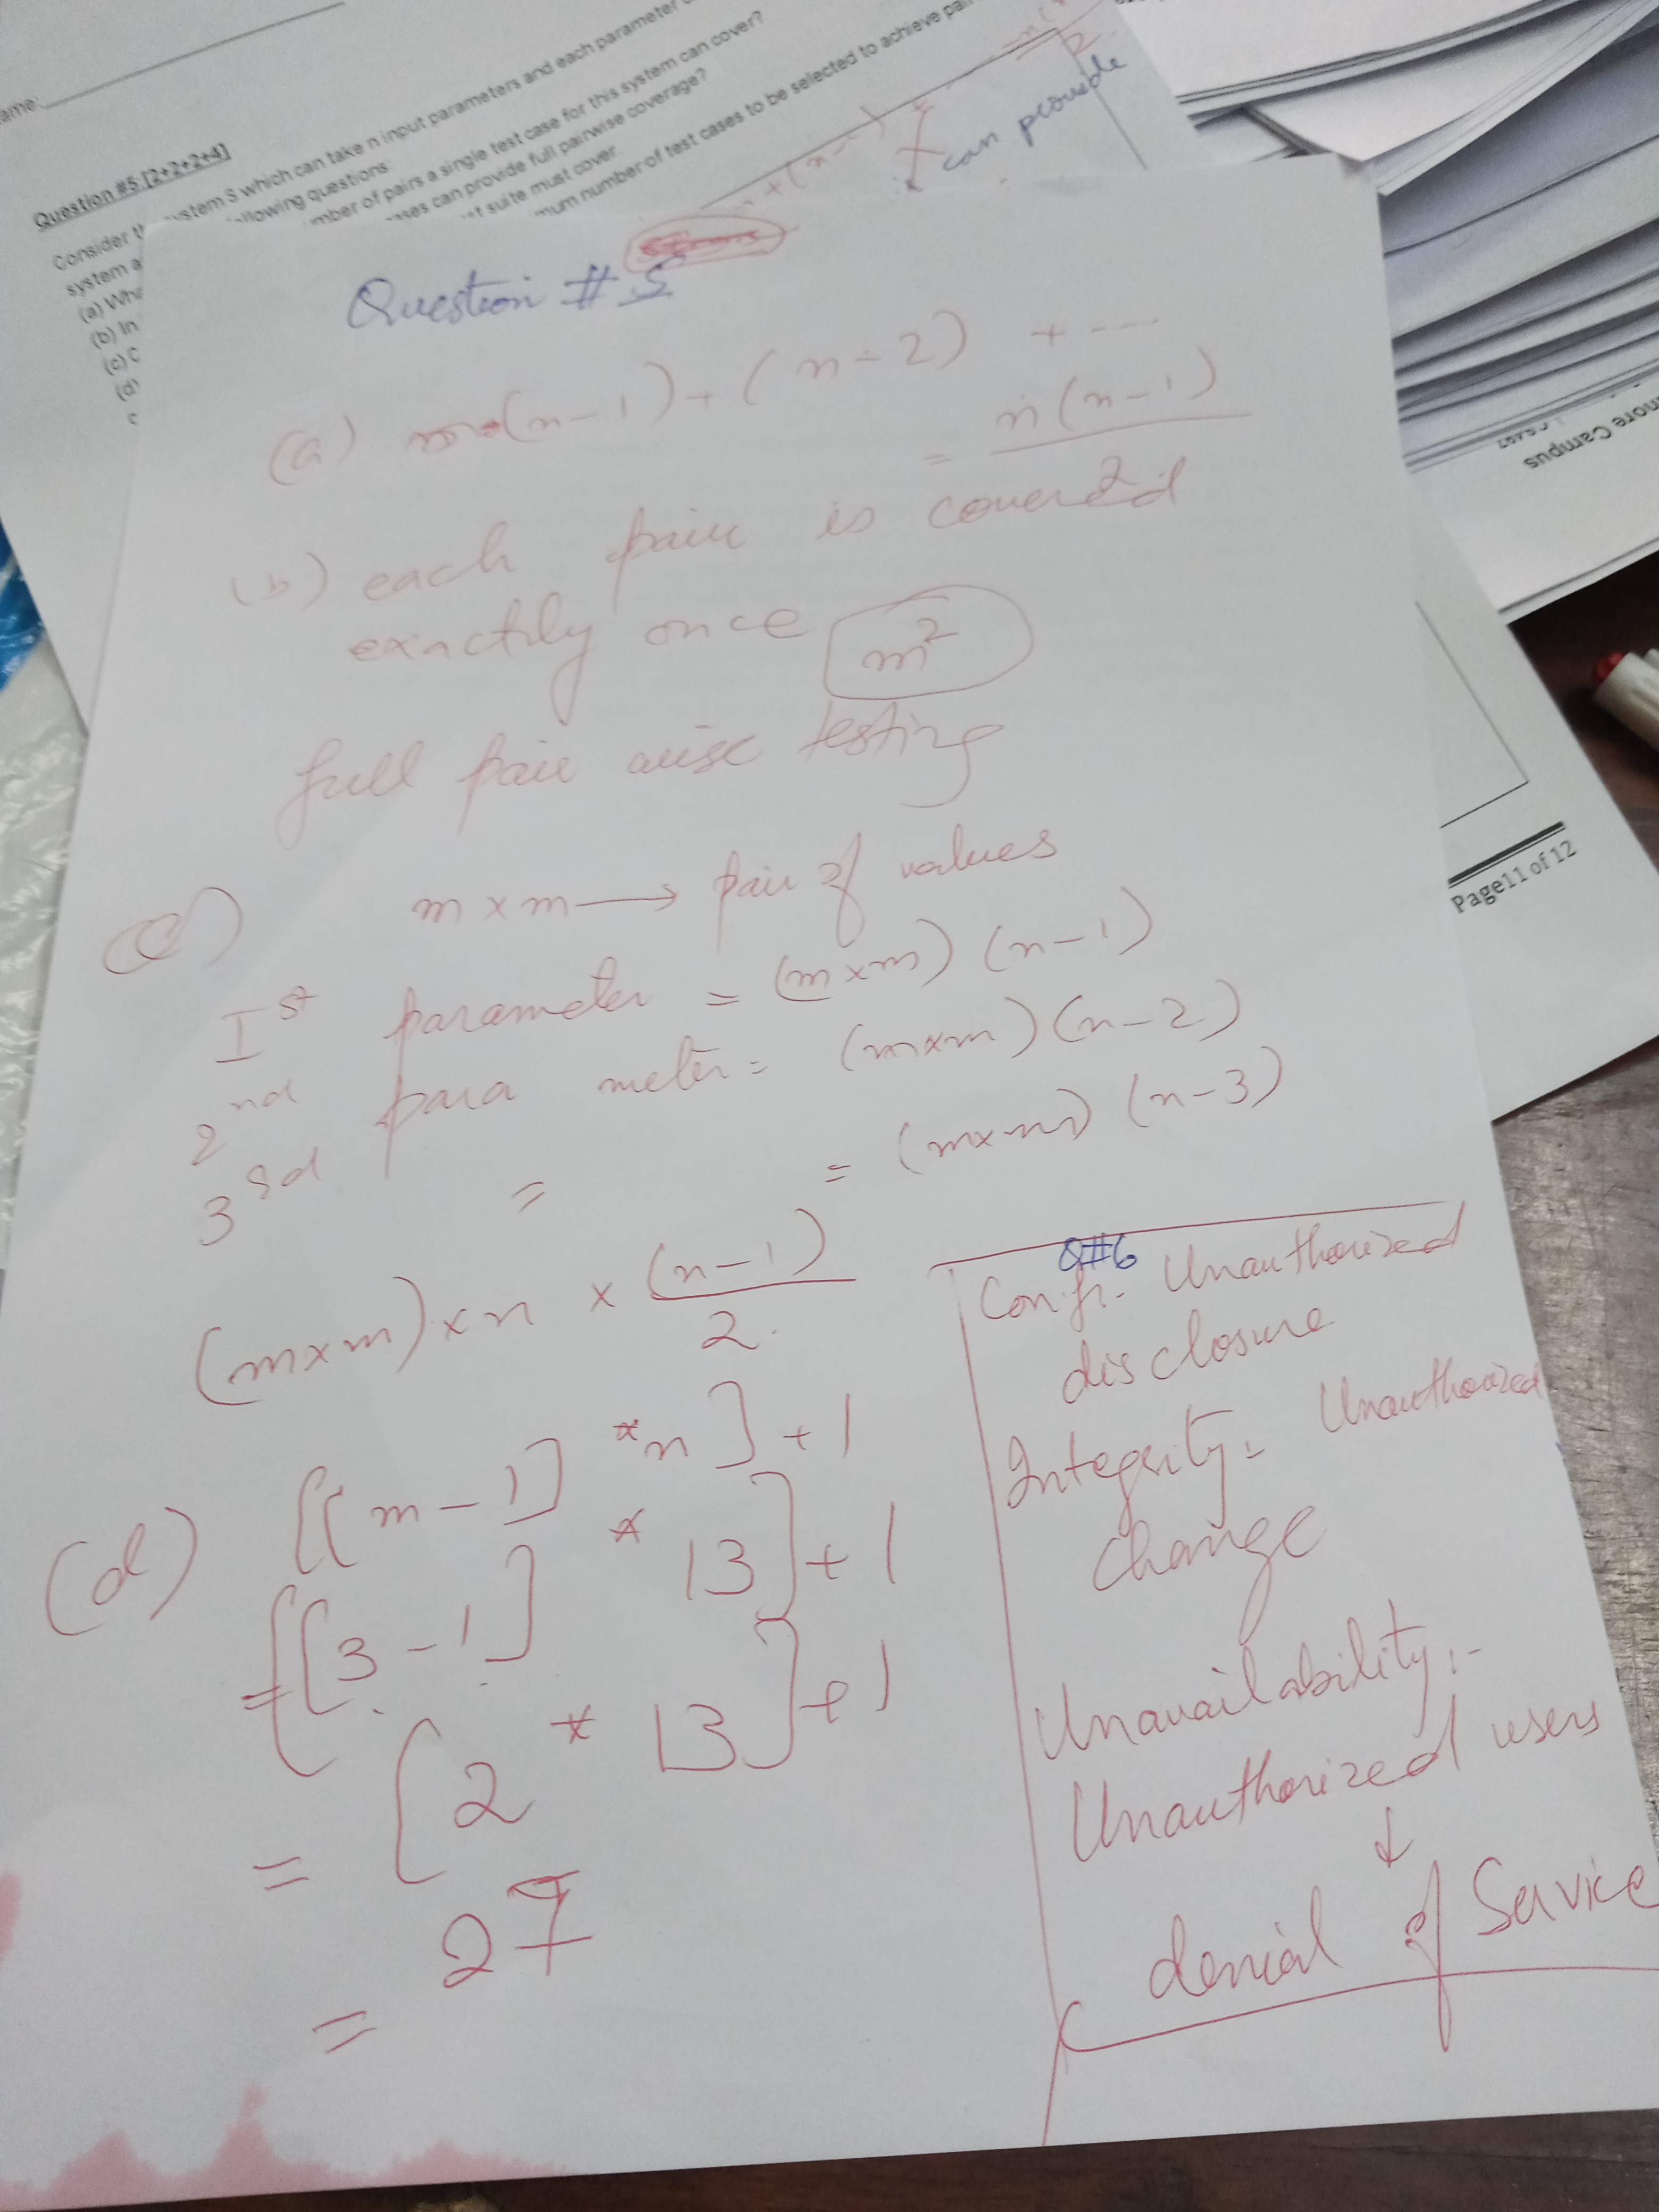 ame:
Question #5 [2+2+2+4]
Consider th ystem S which can take n input parameters and each parameter
system a llowing questions:
(a) Wha mber of pairs a single test case for this system can cover?
(b) In ases can provide full pairwise coverage?
(c) C st suite must cover.
(d) mum number of test cases to be selected to achieve pai
can provide
Question # 5
(a) (n-1) + (n-2) + ---
= n(n-1)
2
(b) each pair is covered
exactily once m²
full pair wise testing
(c) m x m → pair of values
Ist parameter = (m x m) (n-1)
2nd para meter = (m x m) (n-2)
3rd = = (m x m) (n-3)
(m x m) x n x (n-1)
2
(d) [[m-1] * n] + 1
= [[3-1] * 13] + 1
= [2 * 13] + 1
= 27
Q#6
Confi- Unauthorized
disclosure
Integrity = Unauthorized
change
Unavailability :-
Unauthorized users
↓
denial of Service
more Campus
Page11 of 12